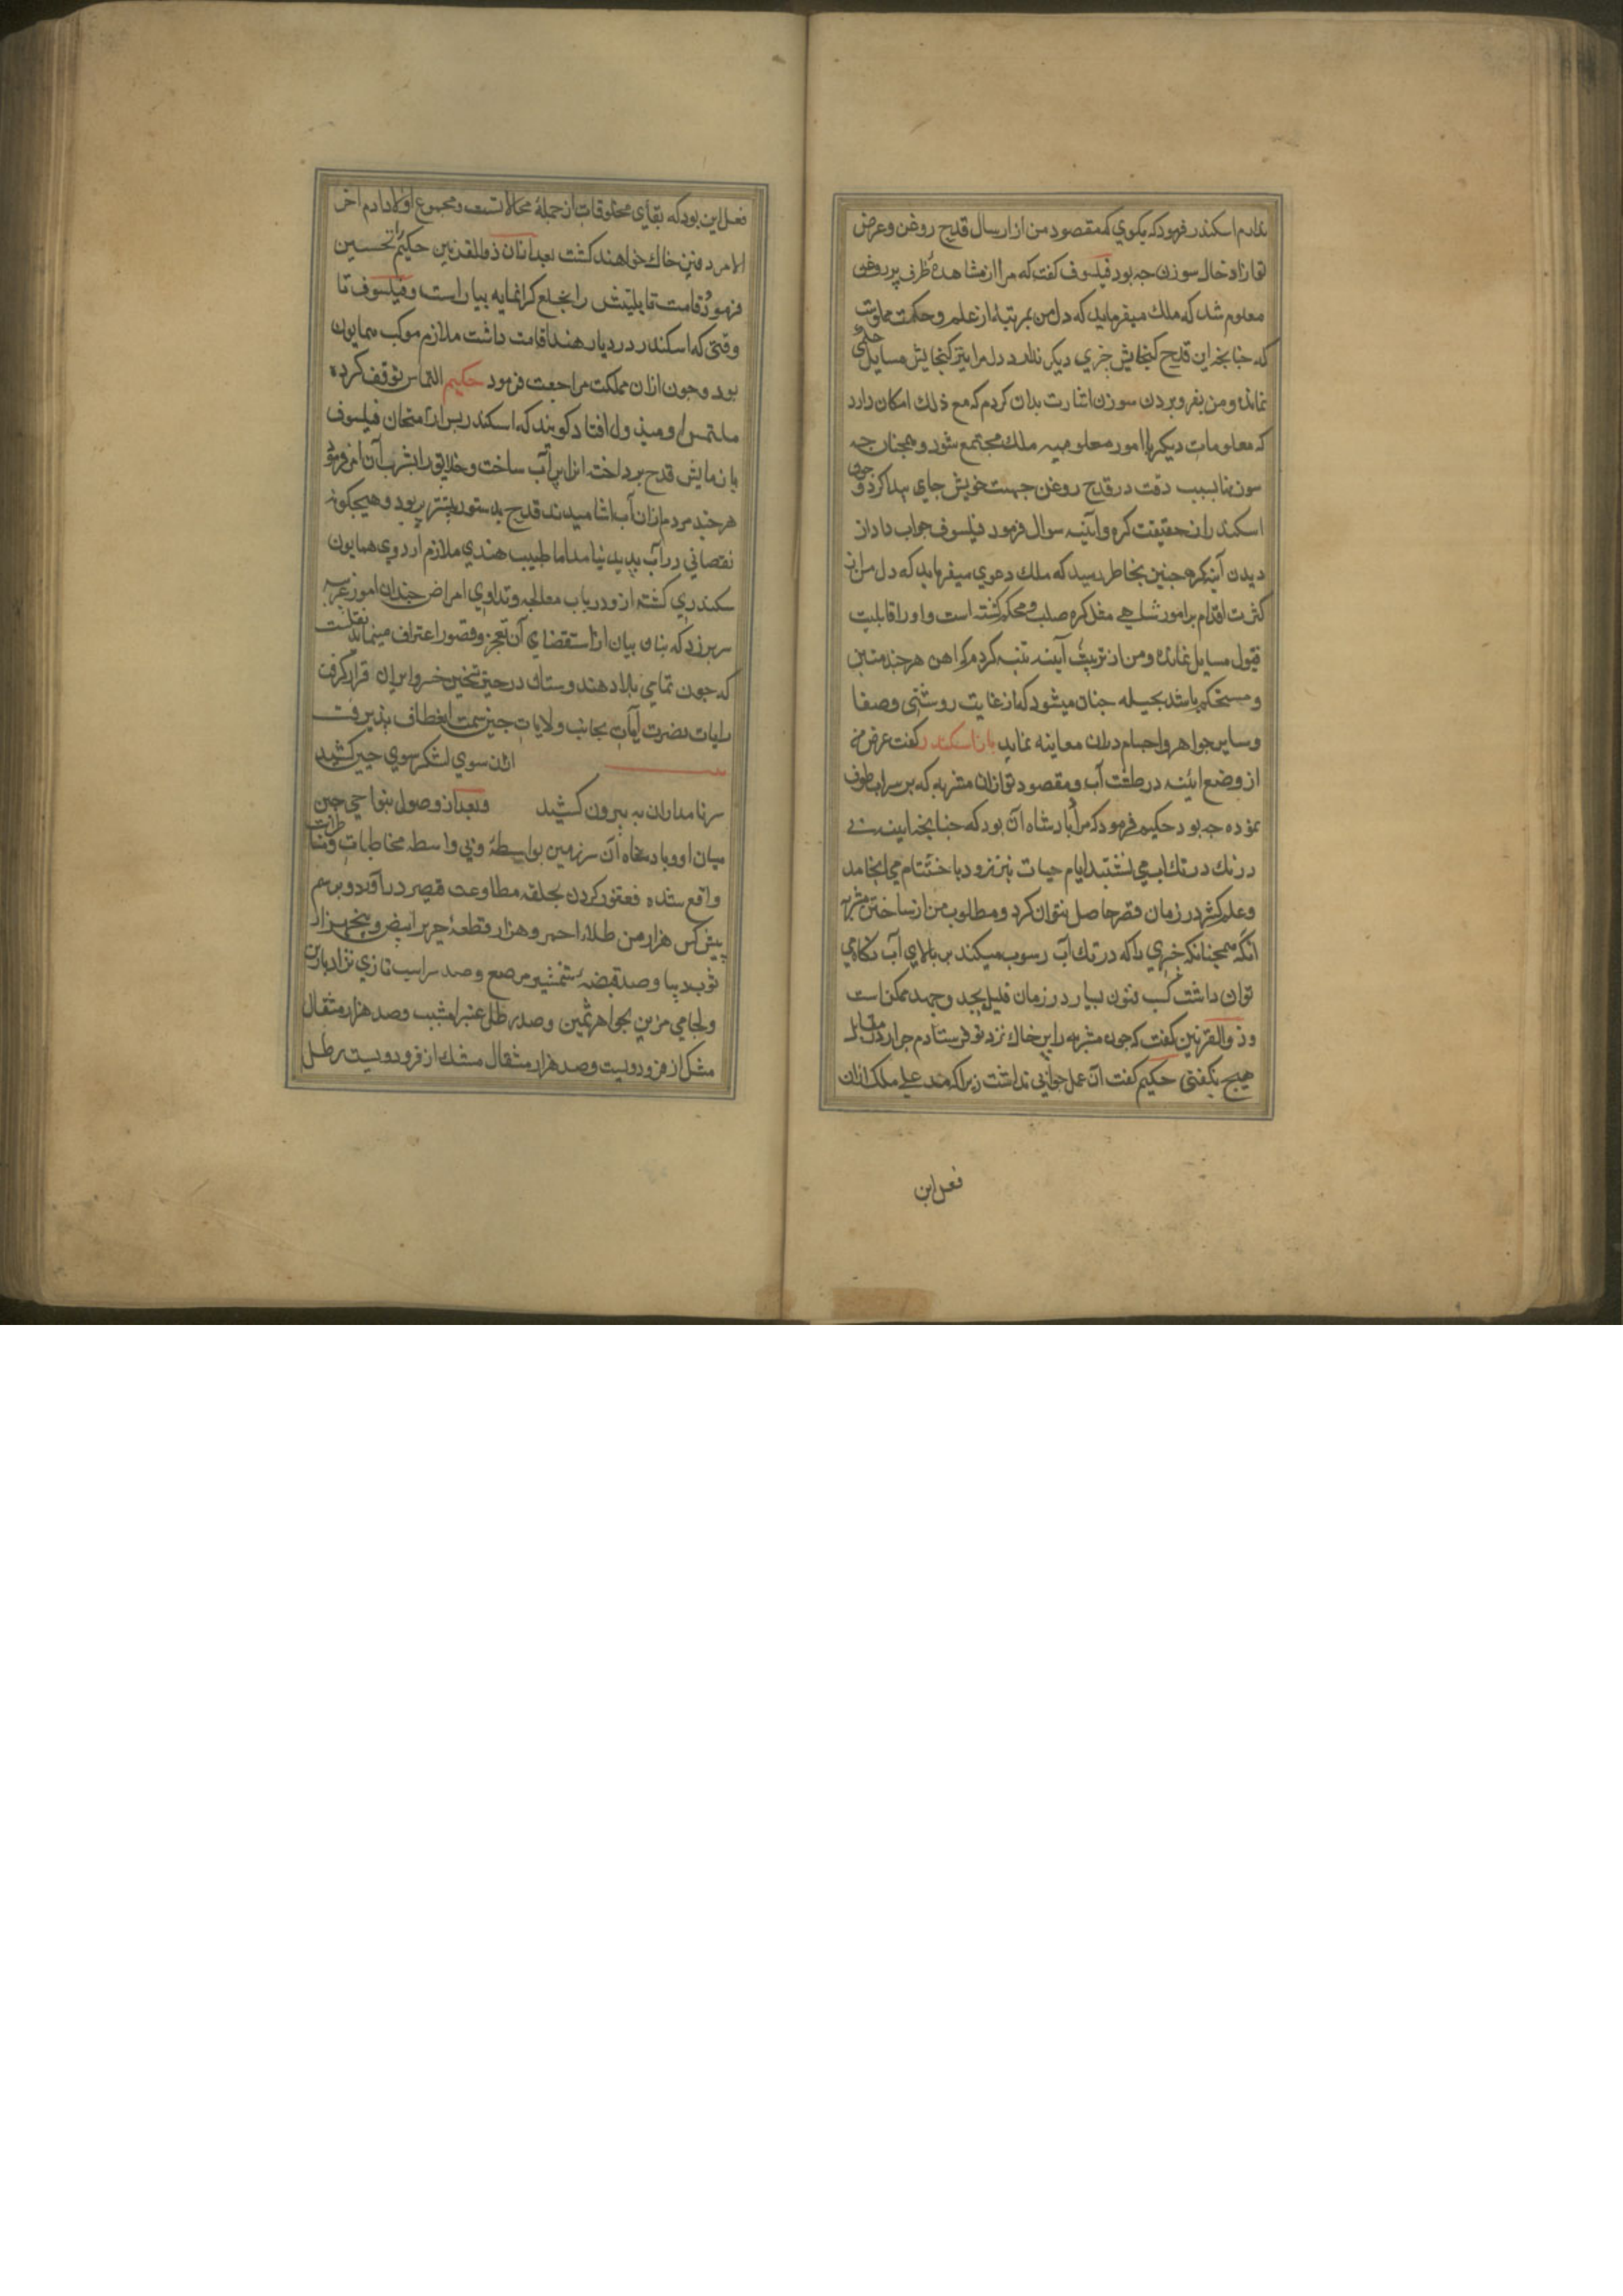 ندارم اسکندر فرمود که بکوی که مقصود من از ارسال قدح روغن و غرض
تو از ادخال سوزن جه بود فیلسوف کفت که مرا از مشاهدهٔ ظرف پر روغن
معلوم شد که ملک میفرماید که دل من بمرتبهٔ از علم و حکمت مملوست
که جنانجه این قدح کنجایش جزی دیکر ندارد دل مرا نیز کنجایش مسایل حکمی
نمانده و من بفرو بردن سوزن اشارت بدان کردم که مع ذلک امکان دارد
که معلومات دیکر با امور معلومیه ملک مجتمع شود و همجنان جه
سوزنها بسبب دقت در قدح روغن جهت خویش جای پیدا کرد و جون
اسکندر از حقیقت کره و آینه سوال فرمود فیلسوف جواب داد از
دیدن آینه کره جنین بخاطر رسید که ملک دعوی میفرماید که دل من از
کثرت اقدام بر امور شاهی مثل کره صلب و محکم کشته است و او را قابلیت
قبول مسایل نمانده و من از ترتیب آینه تنبیه کردم که اهن هرجند متین
و مستحکم باشد بحیله جنان میشود که از غایت روشنی و صفا
و سایر جواهر و اجسام دران معاینه نماید باز اسکندر کفت غرض من
از وضع ائنه در طشت آب و مقصود تو ازان مشربه که بر سر آب طوف
نموده جه بود حکیم فرمود که مراد بادشاه آن بود که جنانجه ایینه بی
درنک در تک آب می نشیند ایام حیات نیز زود باختتام می انجامد
و علم کثیر در زمان قصیر حاصل نتوان کرد و مطلوب من از ساختن مشربه
انکه همجنانکه جیزی را که در تک آب رسوب میکند بر بالای آب نکاه می
توان داشت کسب فنون بسیار در زمان قلیل بجد و جهد ممکن است
و ذو القرنین کفت که جون مشربه را پر خاک نزد تو فرستادم جرا در مقابل
هیج نکفتی حکیم کفت آن عمل جوابی نداشت زیرا که مدعای ملک ازان
فعل این
فعل این بود که بقای مخلوقات از جملهٔ محالاتست و مجموع اولاد ادم اخر
الامر دفین خاک خواهند کشت بعد ازان ذو القرنین حکیم را تحسین
فرمود و قامت قابلیتش را بخلع کرانمایه بیاراست و فیلسوف تا
وقتی که اسکندر در دیار هند اقامت داشت ملازم موکب همایون
بود و جون ازان مملکت مراجعت فرمود حکیم التماس توقف کرده
ملتمس او مبذول افتاد کویند که اسکندر پس از امتحان فیلسوف
بازمایش قدح برداخته انرا پر آب ساخت و خلایق را بشرب آن امر فرمود
هرجند مردم ازان آب اشامیدند قدح بدستور بیشتر پر بود و هیجکونه
نقصانی در آب بدید نیامد اما طبیب هندی ملازم اردوی همایون
سکندری کشته ازو در باب معالجه و تداوی امراض جندان امور غریبه
سر بر زد که بنان بیان از استقصای آن بعجز و قصور اعتراف مینماید نقلست
که جون تمامی بلاد هندوستان در حیز تسخیر خسرو ایران قرار کرفت
رایات نصرت آیات بجانب ولایات جین سمت انعطاف پذیرفت
ازان سوی لشکر سوی جین کشید
سر نامداران به بیرون کشید و بعد از وصول بنواحی جین
میان او و بادشاه آن سرزمین بواسطه و بی واسطه مخاطبات و مناظرات
واقع شده فغفور کردن بحلقه مطاوعت قیصر درآورد و برسم
پیش کش هزار من طلاء احمر و هزار قطعهٔ حریر ابیض و پنج هزار
ثوب دیبا و صد قبضه شمشیر مرصع و صد سر اسب تازی نژاد با زین
و لجامی مزین بجواهر ثمین و صد رطل عنبر اشهب و صد هزار مثقال
مشک اذفر و دویست و صد هزار مثقال مشک اذفر و دویست رطل